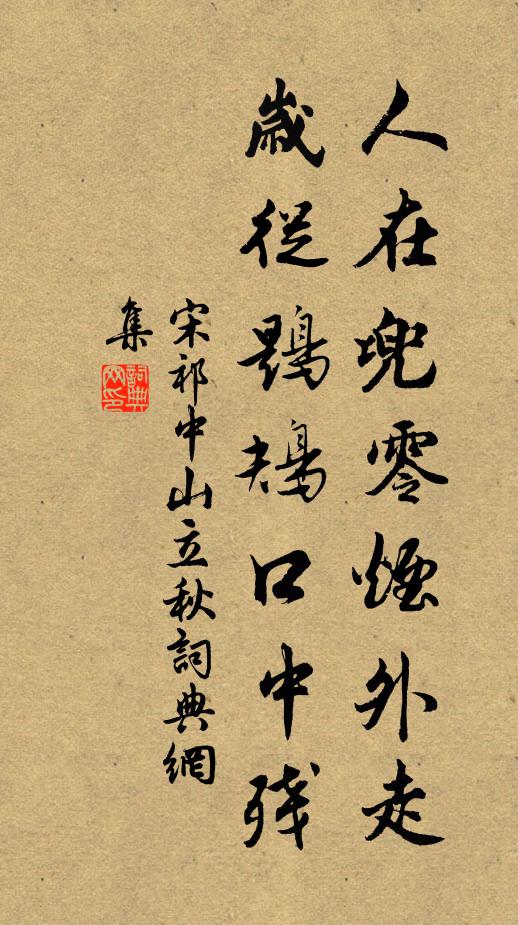 人在兜零煙外走
歲從鶗鴂口中残
宋祁中山立秋詞典網
集
詞典
网印